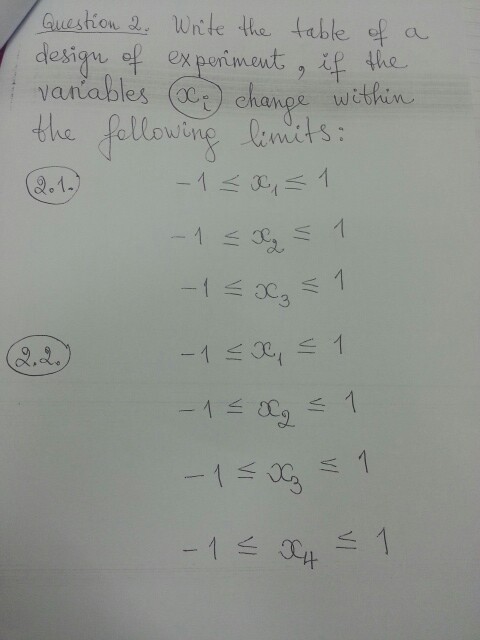 Question 2. Write the table of a
design of experiment, if the
variables xi change within
the following limits:
2.1. -1 ≤ x1 ≤ 1
-1 ≤ x2 ≤ 1
-1 ≤ x3 ≤ 1
2.2. -1 ≤ x1 ≤ 1
-1 ≤ x2 ≤ 1
-1 ≤ x3 ≤ 1
-1 ≤ x4 ≤ 1